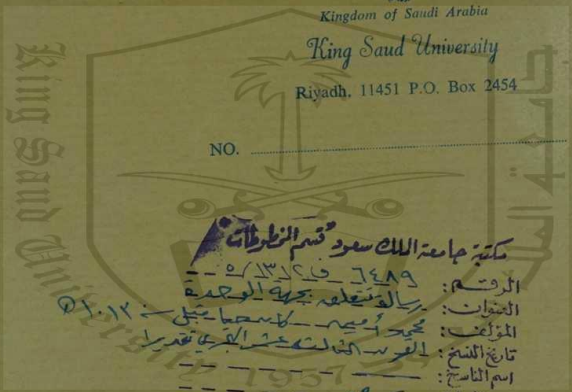 Kingdom of Saudi Arabia
King Saud University
Riyadh, 11451 P.O. Box 2454
NO.
King Saud University
جامعة الملك
مكتبة جامعة الملك سعود قسم المخطوطات
الرقم: ٦٤٨٩ ف ١٣١٢/٥
العنوان: رسالة تتعلق بجهة الوحدة
المؤلف: محمد أمين - كان حيا قبل سنة ١٠١٣
تاريخ النسخ: القرن الثالث عشر الهجري تقديرا
اسم الناسخ:
1957